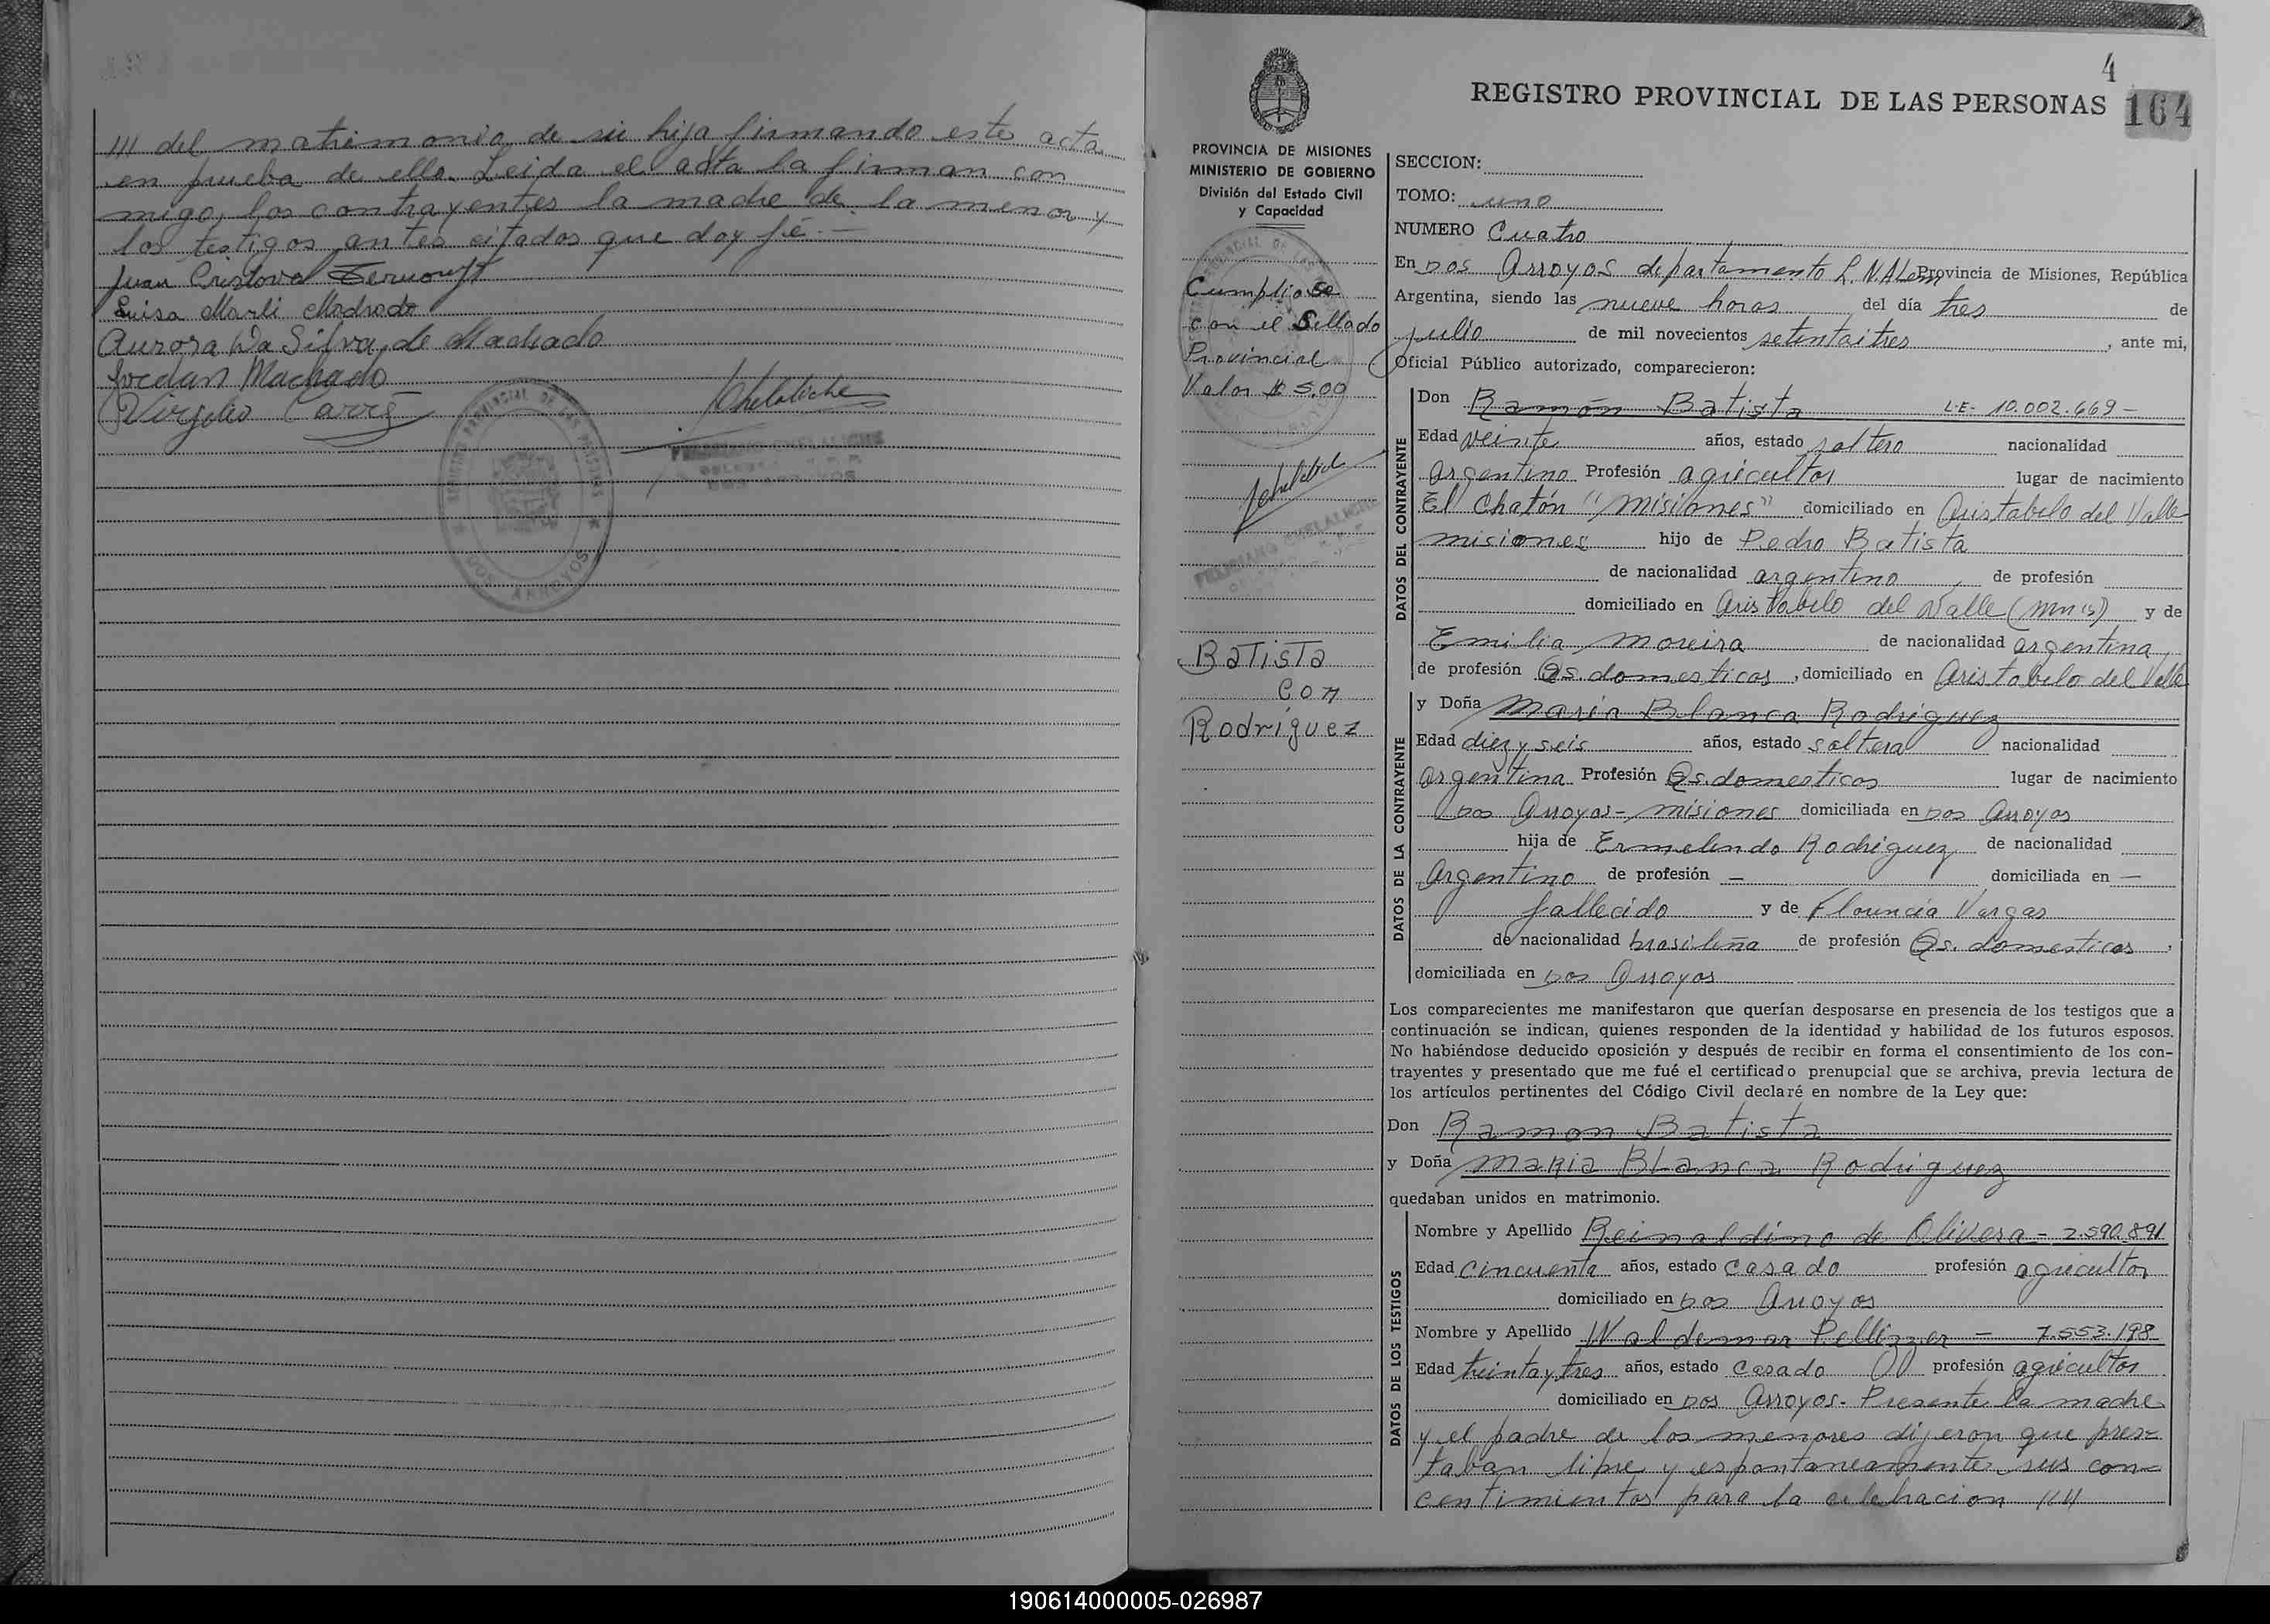 /// del matrimonio de su hija firmando este acta
en prueba de ello. Leida el acta la firman con
migo, los contrayentes la madre de la menor y
los testigos antes citados que doy fé.—
Juan Cristova
Luisa Marli Machado
Aurora Da Silva de Machado
Jordan Machado
Virgilio
REGISTRO PROVINCIAL DE LAS PERSONAS
DOS ARROYOS
4
REGISTRO PROVINCIAL DE LAS PERSONAS 164
PROVINCIA DE MISIONES
MINISTERIO DE GOBIERNO
División del Estado Civil
y Capacidad
Cumpliose
con el Sellado
Provincial
Valor $ 5.00
Batista
con
Rodríguez
SECCION:
TOMO: uno
NUMERO Cuatro
En Dos Arroyos departamento L.N.Alem Provincia de Misiones, República
Argentina, siendo las nueve horas del día tres de
julio de mil novecientos setentaitres, ante mi,
Oficial Público autorizado, comparecieron:
DATOS DEL CONTRAYENTE
Don Ramón Batista L.E. 10.002.669-
Edad veinte años, estado soltero nacionalidad
argentino Profesión agricultor lugar de nacimiento
El Chatón "Misiones" domiciliado en Aristobulo del Valle
misiones hijo de Pedro Batista
de nacionalidad argentino, de profesión
domiciliado en Aristobulo del Valle (Mnes) y de
Emilia Moreira de nacionalidad argentina,
de profesión Qs. domesticos, domiciliado en Aristobulo del Valle
DATOS DE LA CONTRAYENTE
y Doña Maria Blanca Rodriguez
Edad diez y seis años, estado soltera nacionalidad
argentina Profesión Qs. domesticos lugar de nacimiento
Dos Arroyos - misiones domiciliada en Dos Arroyos
hija de Ermelindo Rodriguez de nacionalidad
Argentino de profesión — domiciliada en —
fallecido y de Florencia Vargas
de nacionalidad brasileña de profesión Qs. domesticos,
domiciliada en Dos Arroyos
Los comparecientes me manifestaron que querían desposarse en presencia de los testigos que a
continuación se indican, quienes responden de la identidad y habilidad de los futuros esposos.
No habiéndose deducido oposición y después de recibir en forma el consentimiento de los con-
trayentes y presentado que me fué el certificado prenupcial que se archiva, previa lectura de
los artículos pertinentes del Código Civil declaré en nombre de la Ley que:
Don Ramon Batista
y Doña Maria Blanca Rodriguez
quedaban unidos en matrimonio.
DATOS DE LOS TESTIGOS
Nombre y Apellido Reinaldino de Olivera - 2.590.891
Edad cincuenta años, estado casado profesión agricultor
domiciliado en Dos Arroyos
Nombre y Apellido Waldemar Pellizzer - 7.553.198
Edad treinta y tres años, estado casado profesión agricultor
domiciliado en Dos Arroyos. Presente la madre
y el padre de los menores dijeron que pres=
taban libre y espontaneamente sus con=
centimientos para la celebracion ///
190614000005-026987